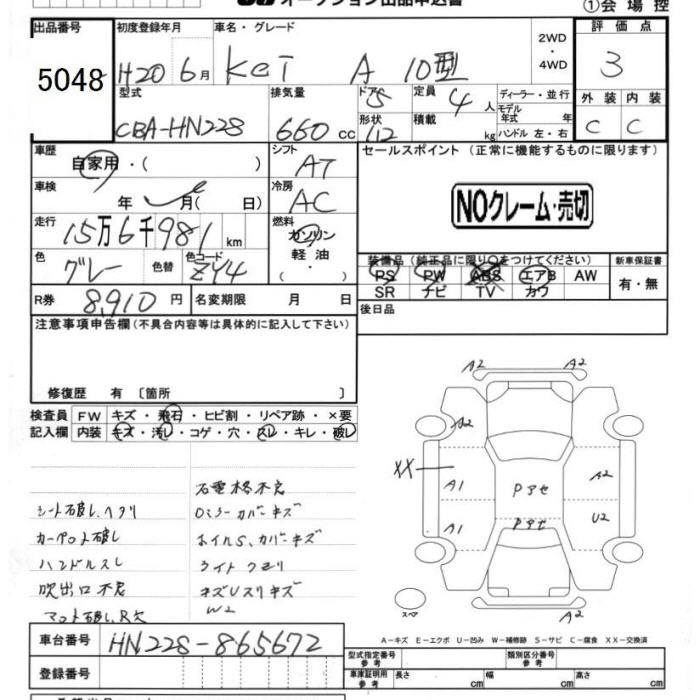 オークション出品申込書
①会場控
出品番号
5048
初度登録年月
H20 6月
車名・グレード
Kei A 10型
2WD
・
4WD
評価点
3
外装 内装
C C
型式
CBA-HN22S
排気量
660 cc
ドア 5
形状 112
定員 4 人
積載 kg
ディーラー・並行
モデル年式 年
ハンドル 左・右
車歴
自家用・( )
シフト
AT
セールスポイント(正常に機能するものに限ります)
車検
年 月( 日)
冷房
AC
NOクレーム・売切
走行
15万6千981 km
燃料
ガソリン
軽油
( ・ )
色
グレー
色替
色コード
ZY4
装備品(純正品に限り○をつけてください)
新車保証書
PS PW ABS エアB AW
SR ナビ TV カワ
有・無
R券 8,910 円
名変期限 月 日
後日品
注意事項申告欄(不具合内容等は具体的に記入して下さい)
修復歴 有〔箇所 〕
検査員
記入欄
FW キズ・飛石・ヒビ割・リペア跡・×要
内装 キズ・汚レ・コゲ・穴・スレ・キレ・破レ
シート破し、ヘタリ
カーペット破し
ハンドルスレ
吹出口不良
マット破し、R欠
右電格不良
Dミラーカバーキズ
ホイルS、カバーキズ
ライトクモリ
キズUスリキズ
W2
A2 A2
A2
XX
A1 Pアセ A2
A1 Pアセ U2
A2
スペア
A-キズ E-エクボ U-凹み W-補修跡 S-サビ C-腐食 XX-交換済
車台番号 HN22S-865672
登録番号
型式指定番号
参考
類別区分番号
参考
車庫証明用
参考
長さ cm 幅 cm 高さ cm